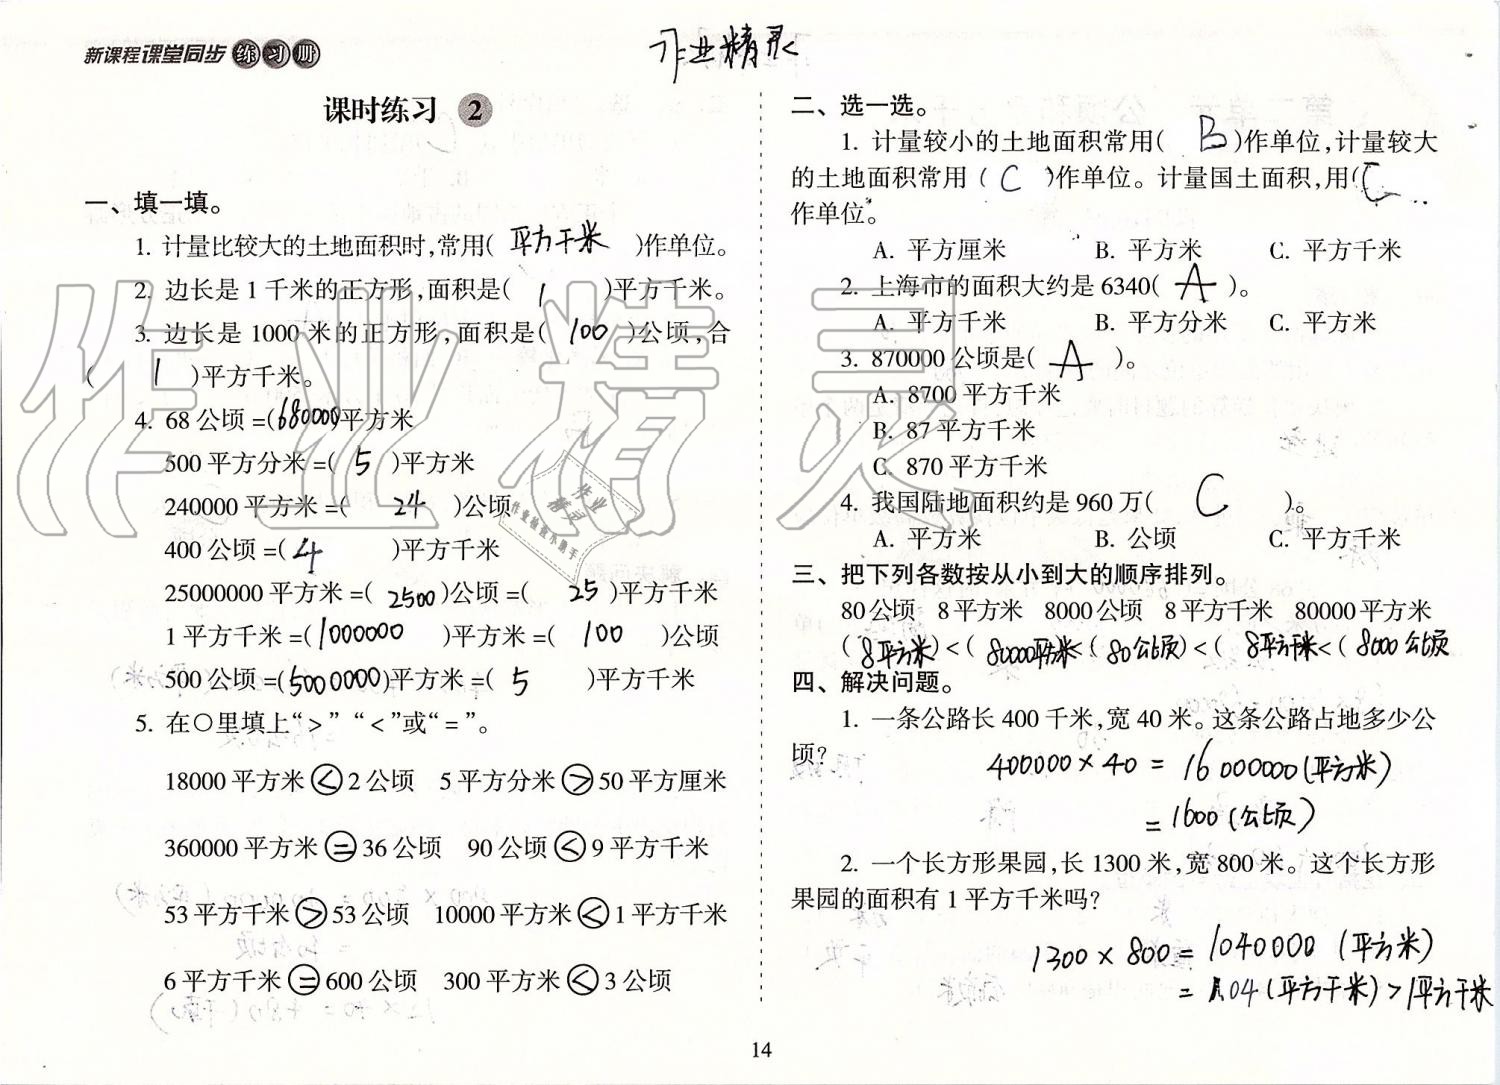 新课程课堂同步练习册
作业精灵
课时练习 2
一、填一填。
1. 计量比较大的土地面积时,常用( 平方千米 )作单位。
2. 边长是1千米的正方形,面积是( 1 )平方千米。
3. 边长是1000米的正方形,面积是( 100 )公顷,合
( 1 )平方千米。
4. 68公顷=(680000)平方米
500平方分米=( 5 )平方米
240000平方米=( 24 )公顷
400公顷=( 4 )平方千米
25000000平方米=( 2500 )公顷=( 25 )平方千米
1平方千米=( 1000000 )平方米=( 100 )公顷
500公顷=(5000000)平方米=( 5 )平方千米
5. 在○里填上“>”“<”或“=”。
18000平方米<2公顷 5平方分米>50平方厘米
360000平方米=36公顷 90公顷<9平方千米
53平方千米>53公顷 10000平方米<1平方千米
6平方千米=600公顷 300平方米<3公顷
二、选一选。
1. 计量较小的土地面积常用( B )作单位,计量较大
的土地面积常用( C )作单位。计量国土面积,用( C
作单位。
A. 平方厘米 B. 平方米 C. 平方千米
2. 上海市的面积大约是6340( A )。
A. 平方千米 B. 平方分米 C. 平方米
3. 870000公顷是( A )。
A. 8700平方千米
B. 87平方千米
C. 870平方千米
4. 我国陆地面积约是960万( C )。
A. 平方米 B. 公顷 C. 平方千米
三、把下列各数按从小到大的顺序排列。
80公顷 8平方米 8000公顷 8平方千米 80000平方米
( 8平方米)<( 80000平方米<( 80公顷)<( 8平方千米<( 8000公顷
四、解决问题。
1. 一条公路长400千米,宽40米。这条公路占地多少公
顷?
400000×40=16000000(平方米)
=1600(公顷)
2. 一个长方形果园,长1300米,宽800米。这个长方形
果园的面积有1平方千米吗?
1300×800=1040000(平方米)
=1.04(平方千米)>1平方千米
14
作业精灵
作业
精灵
作业检查小助手